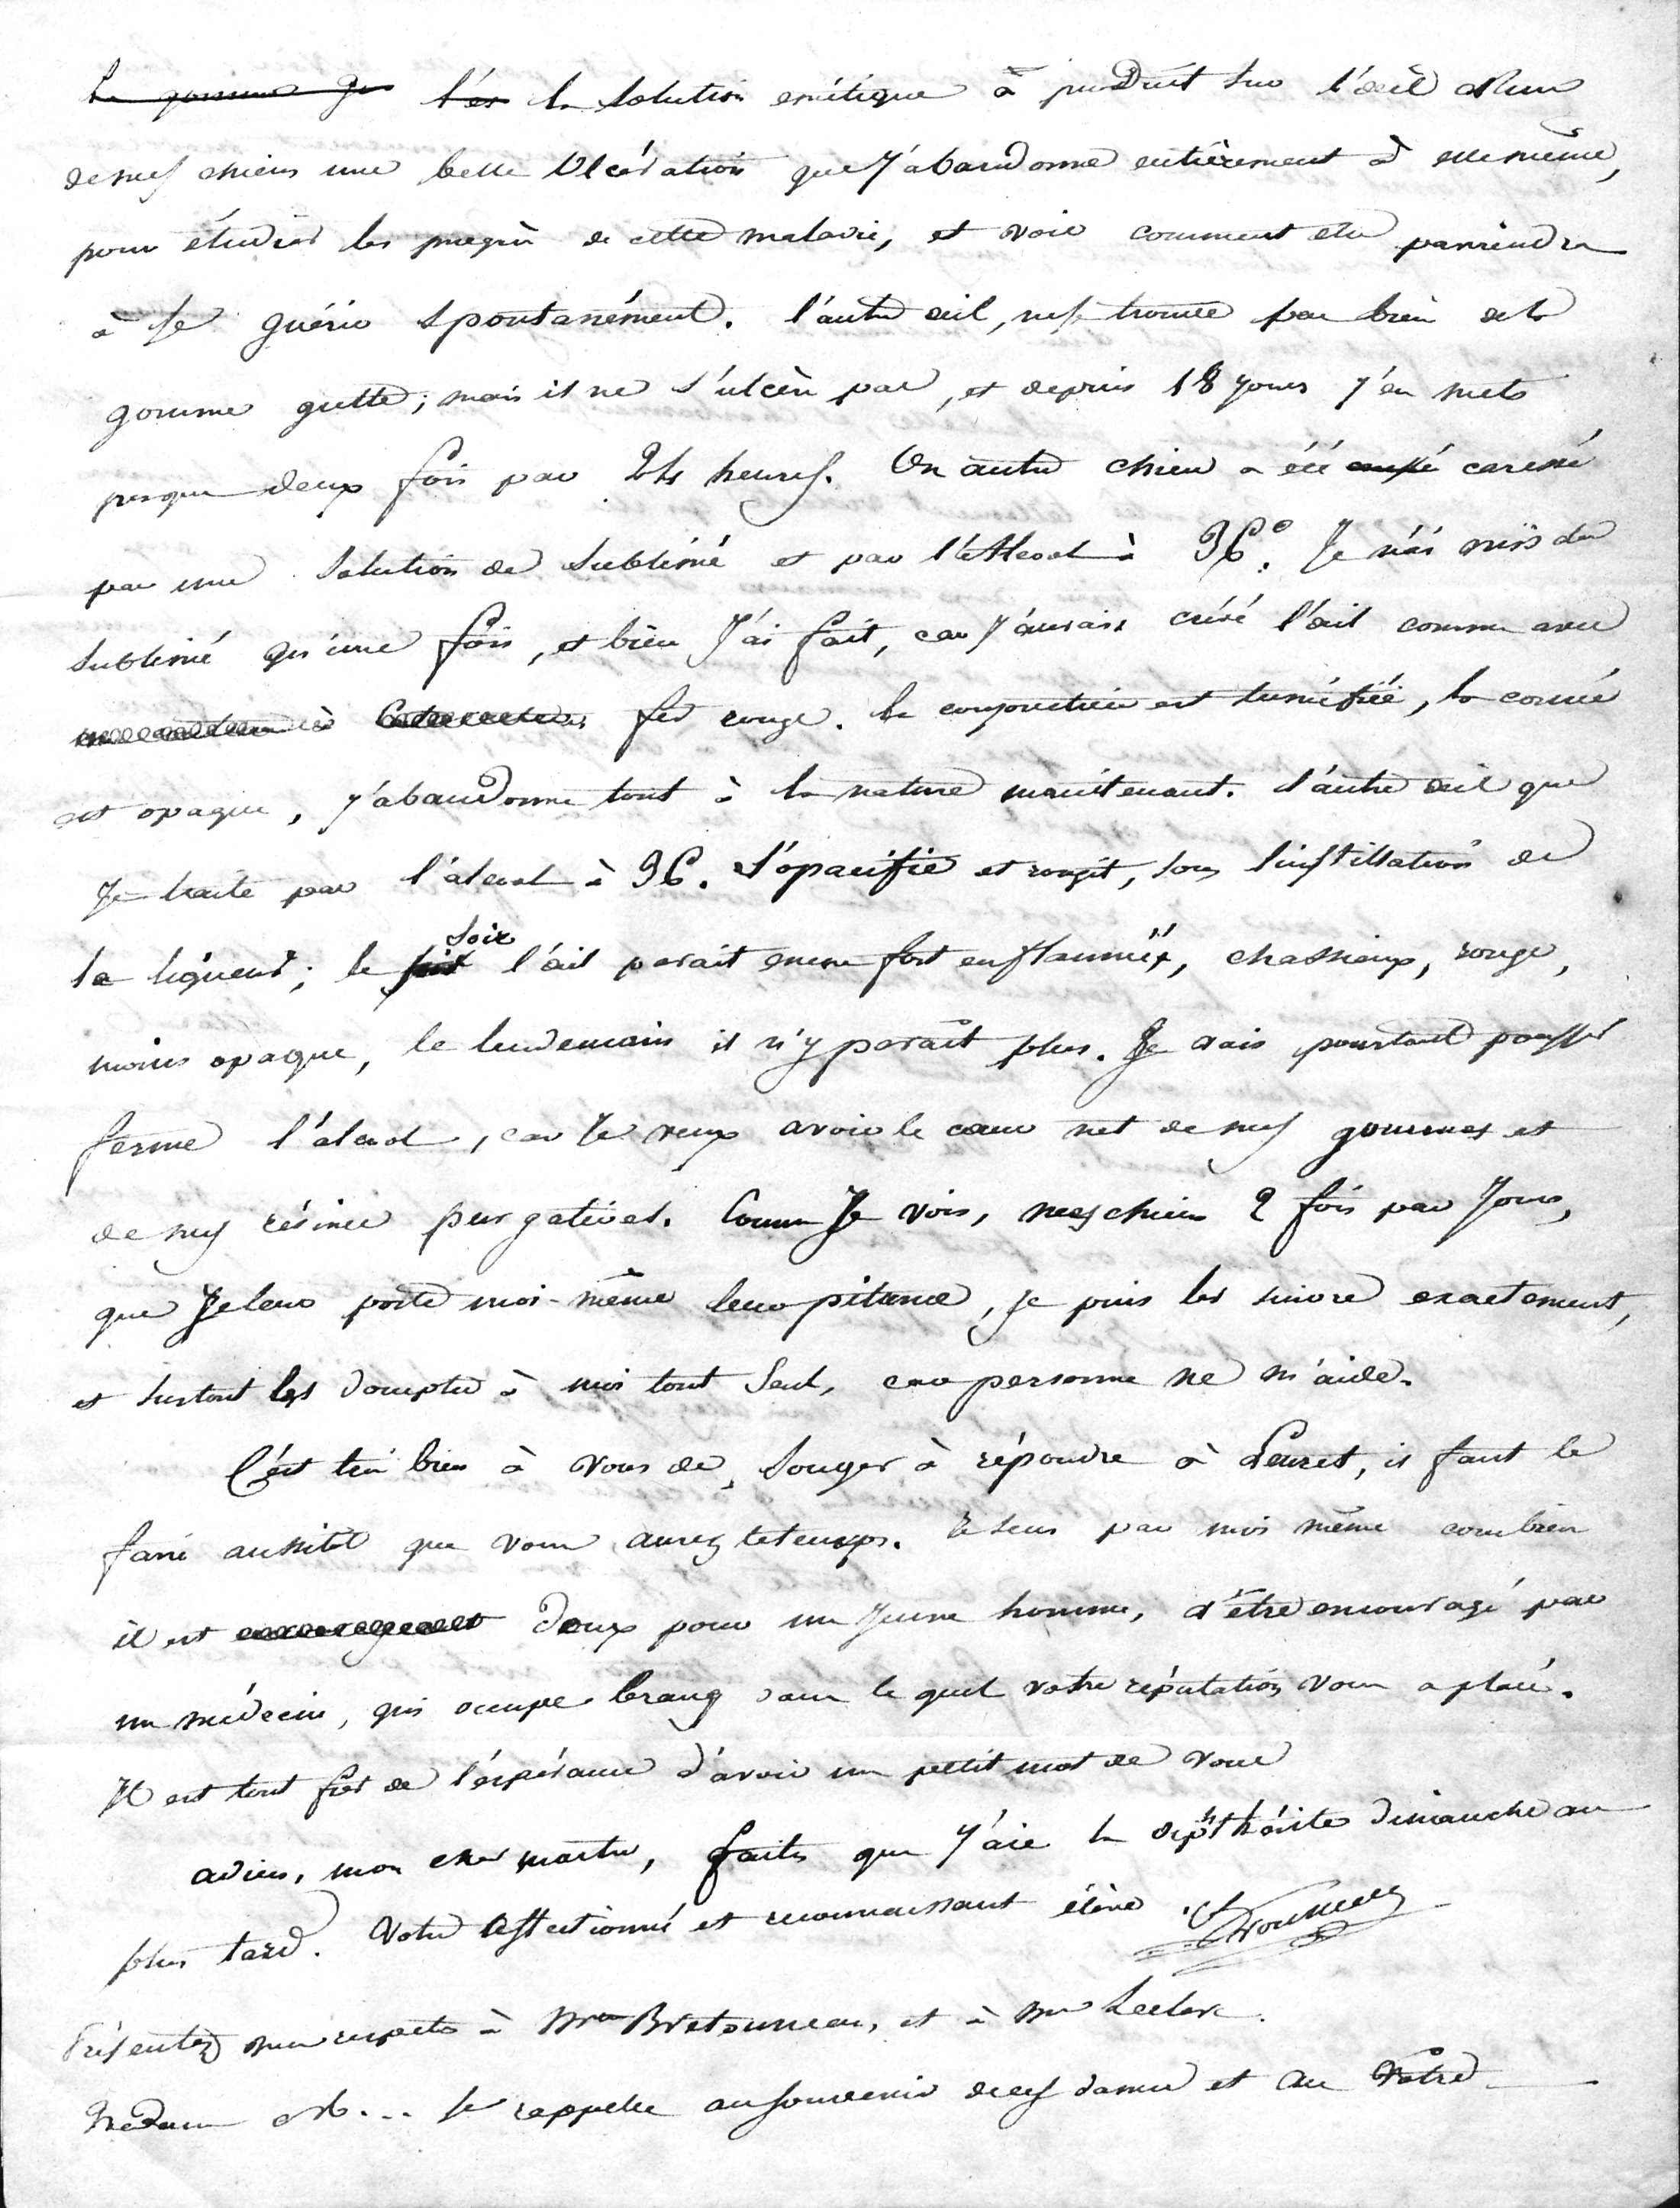 la solution émétique à produit sur l'œil d'un
de mes chiens une belle Ulcération que J'abandonne entièrement à elle même,
pour étudier les progrès de cette maladie, et voir comment elle parviendra
à se guérir spontanément. l'autre œil, ne se trouve pas bien de la
gomme gutte; mais il ne s'ulcère pas, et depuis 18 jours J'en mets
presque deux fois par 24 heures. Un autre chien a été caressé
par une Solution de Sublimé et par l'Alcool à 36°. Je n'ai mis du
Sublimé qu'une fois, et bien J'ai fait, car J'aurais crévé l'œil comme avec
fer rouge. la conjonctive est tuméfiée, la cornée
est opaque, J'abandonne tout à la nature maintenant. L'autre œil que
Je traite par l'alcool à 36. s'opacifie et rougit, sous l'instillation de
la liqueur; le soir l'œil parait encore fort enflammé, chassieux, rouge,
moins opaque, le lendemain il n'y paraît plus. Je vais pourtant pousser
ferme l'alcool, car Je veux avoir le cœur net de mes gommes et
de mes résines purgatives. Comme Je vois, mes chiens 2 fois par Jour,
que Je leur porte moi-même leur pitance, Je puis les suivre exactement,
et surtout les dompter à moi tout Seul, car personne ne m'aide.
C'est très bien à vous de, Songer à répondre à Leuret, il faut le
faire aussitôt que vous aurez le temps. Je sens par moi même combien
il est Doux pour un Jeune homme, d'être encouragé par
un médecin, qui occupe le rang dans le quel votre réputation vous a placé.
Il est tout fier de l'espérance d'avoir un petit mot de vous
adieu, mon cher maître, faites que J'aie la dipthérite dimanche au
plus tard. Votre Affectionné et reconnaissant élève Trousseau
Présentez mes respects à Mme Bretonneau, et à Mme Leclerc.
Madame M... se rappelle au souvenir de ces dames et au Vôtre